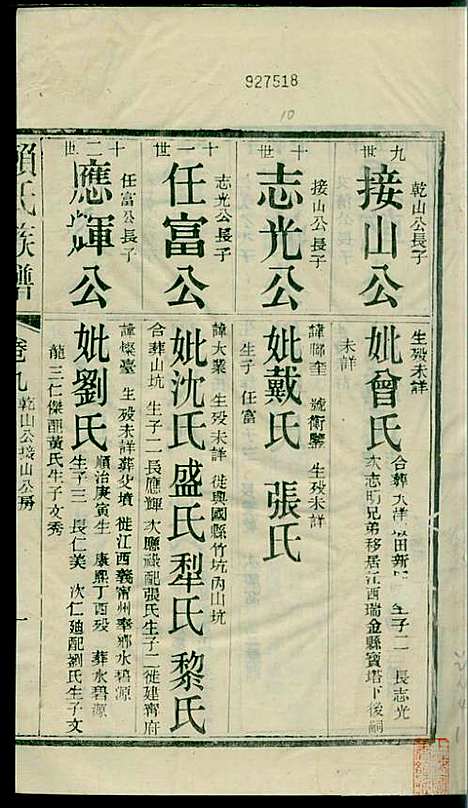 927518
10
九世
接山公
乾山公長子
生歿未詳
未詳
妣曾氏
生子二 長志光
次志明兄弟移居江西瑞金縣寶塔下後嗣
十世
志光公
接山公長子
諱聯奎 號衡鑒 生歿未詳
妣戴氏 張氏
生子 任富
十一世
任富公
志光公長子
諱大業 生歿未詳 徙興國縣竹坑內山坑
妣沈氏盛氏犁氏黎氏
合葬山坑 生子二 長應輝 次應 配張氏生子二徙建甯府
十二世
應輝公
任富公長子
諱燦臺 生歿未詳葬父墳 徙江西義甯州奉鄉水碧源
妣劉氏
順治庚寅生 康熙丁酉歿 葬水碧源
生子三 長仁美 次仁廸配劉氏生子文
龍 三仁傑配黃氏生子文秀
賴氏族譜
卷九
乾山公接山公房
一